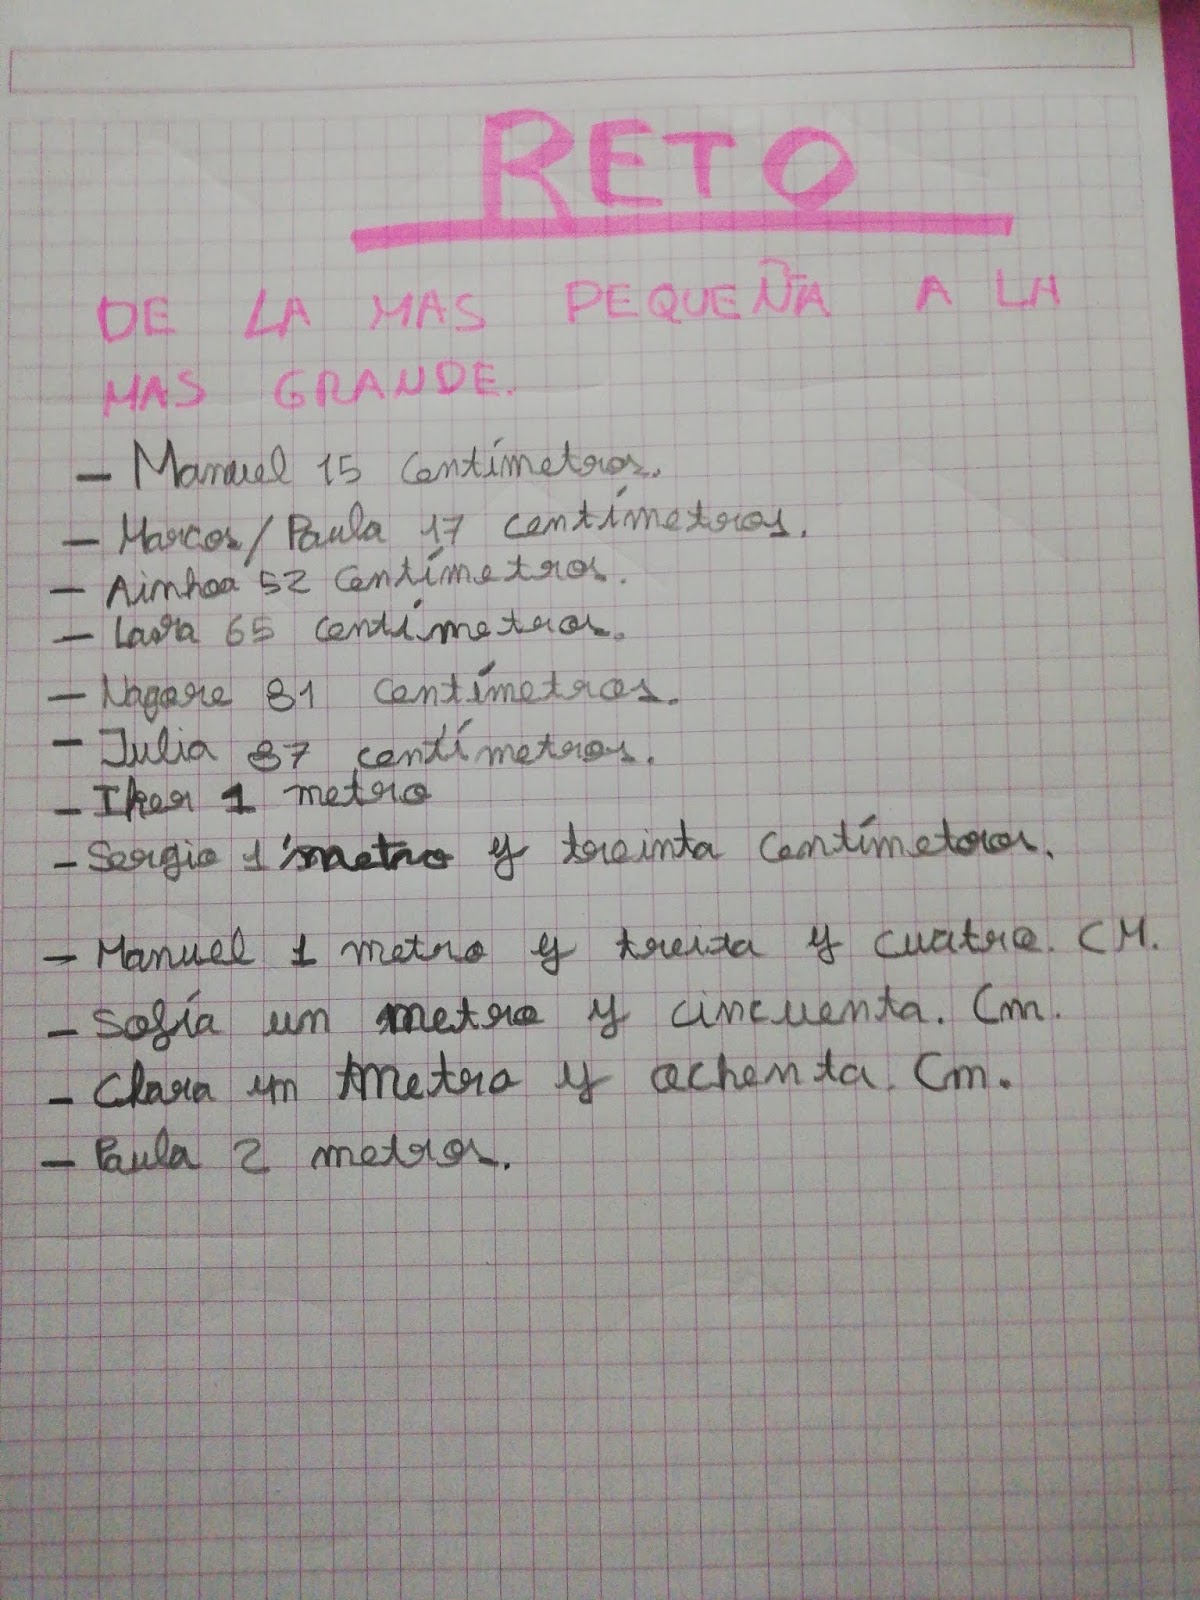 RETO
DE LA MAS PEQUEÑA A LA
MAS GRANDE.
- Manuel 15 centímetros.
- Marcos/Paula 17 centímetros.
- Ainhoa 52 centímetros.
- Laura 65 centímetros.
- Nagore 81 centímetros.
- Julia 87 centímetros.
- Iker 1 metro
- Sergio 1 metro y treinta centímetros.
- Manuel 1 metro y treita y cuatro. CM.
- Sofía un metro y cincuenta. Cm.
- Clara un metro y ochenta. Cm.
- Paula 2 metros.